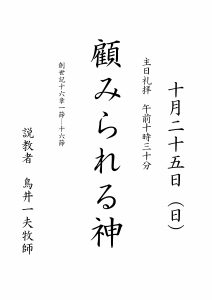 十月二十五日（日）
主日礼拝　午前十時三十分
顧みられる神
創世記十六章一節―十六節
説教者　鳥井一夫牧師